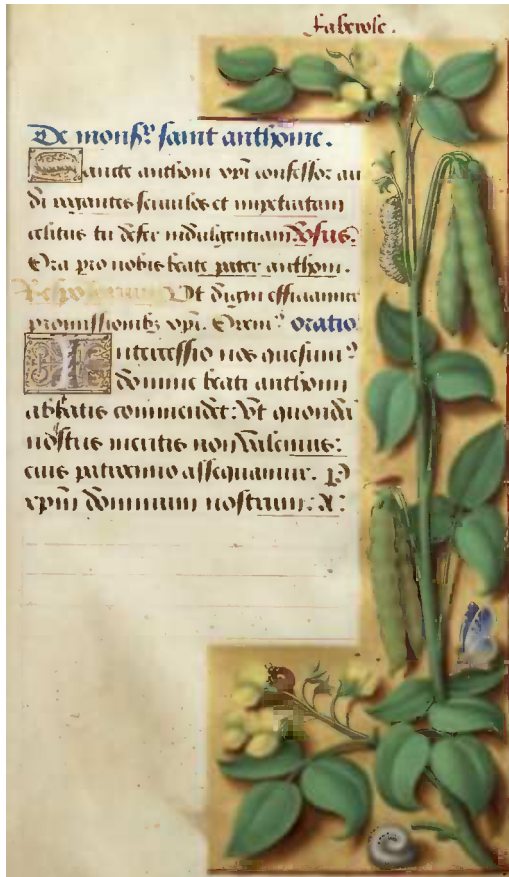 Faberole.
De monsr saint anthoine.
Sancte anthoni xpi confessor au
di rogantes servulos et impetratam
celitus tu defer indulgentiam. Versus.
Ora pro nobis beate pater anthoni.
Responsorium. Ut digni efficiamur
promissionibz xpi. Orem9 oratio
Intercessio nos quesum9
domine beati anthonii
abbatis commendet: Ut quod
nostris meritis non valemus:
eius patrocinio assequamur. P
xpm dominum nostrum: A: